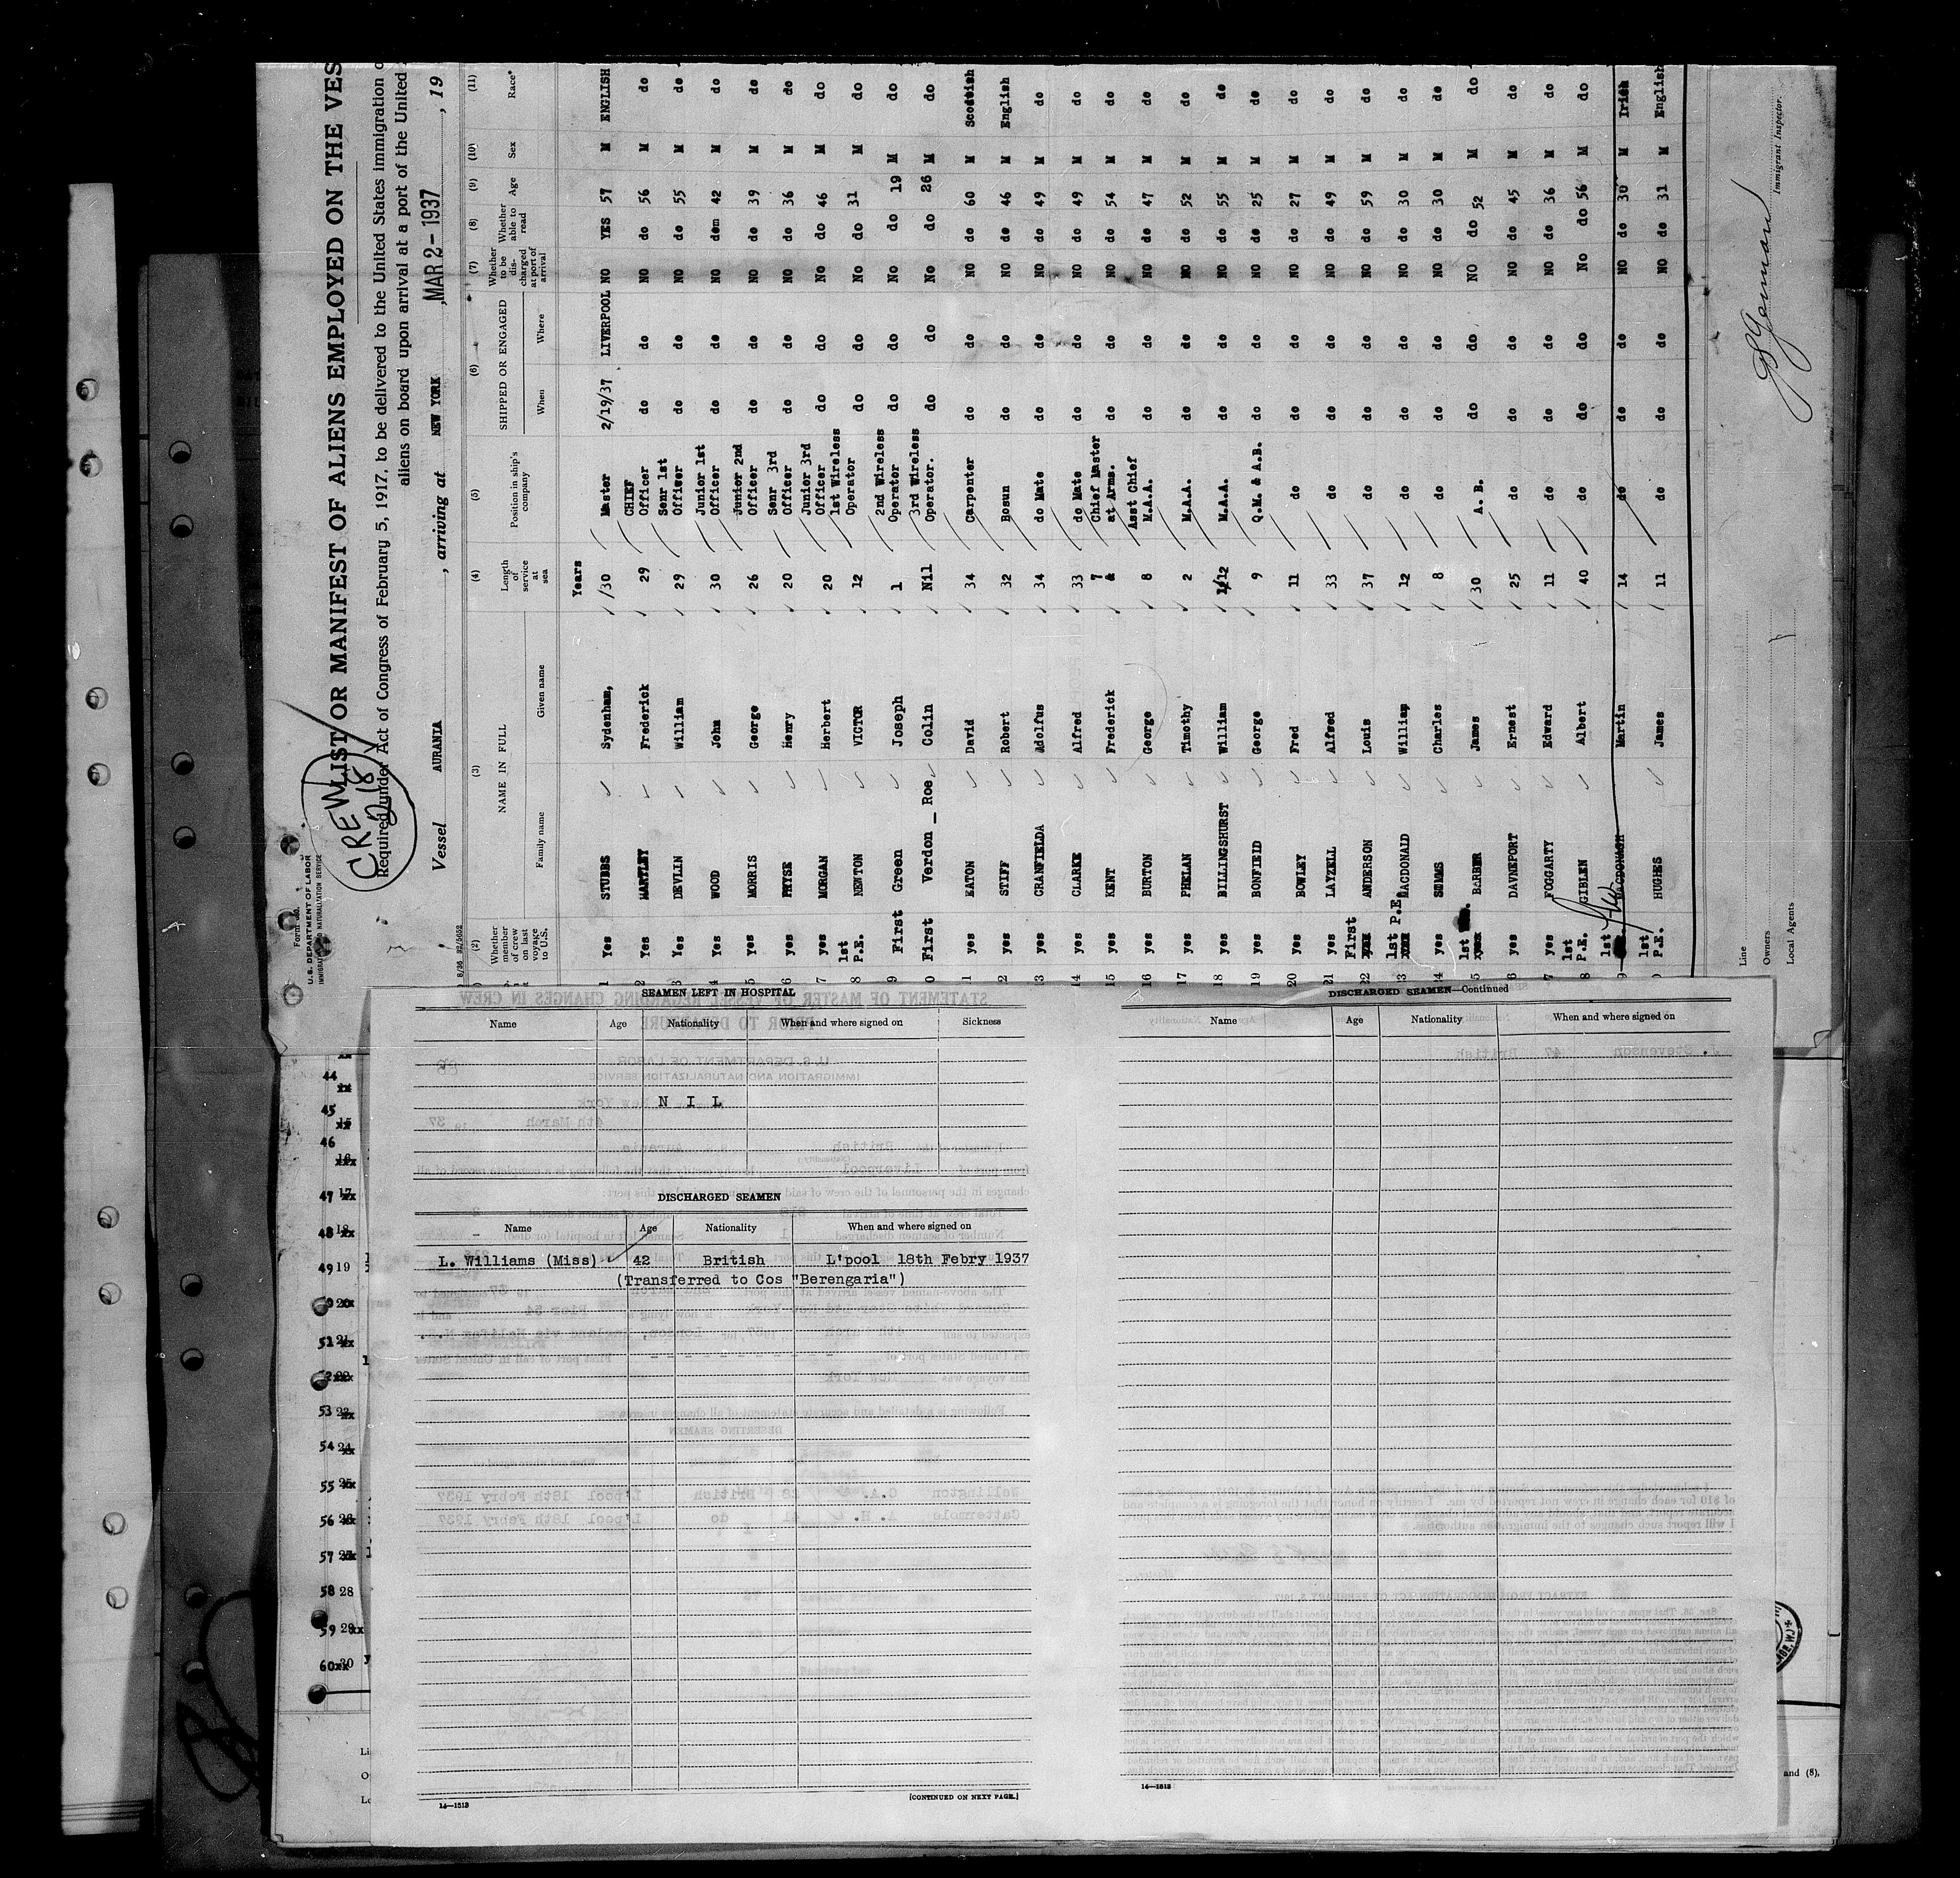 Form 680
U. S. DEPARTMENT OF LABOR
IMMIGRATION AND NATURALIZATION SERVICE
CREW
218
LIST OR MANIFEST OF ALIENS EMPLOYED ON THE VES
Required under Act of Congress of February 5, 1917, to be delivered to the United States immigration o
aliens on board upon arrival at a port of the United
Vessel AURANIA , arriving at NEW YORK , MAR 2 - 1937 , 19
(2) (3) (4) (5) (6) (7) (8) (9) (10) (11)
Whether member of crew on last voyage to U.S. NAME IN FULL Length of service at sea Position in ship's company SHIPPED OR ENGAGED Whether to be discharged at port of arrival Whether able to read Age Sex Race*
Family name Given name When Where
Years
1 Yes STUBBS Sydenham, 30 Master 2/19/37 LIVERPOOL NO YES 57 M ENGLISH
Yes HARTLEY Frederick 29 CHIEF Officer do do NO do 56 M do
3 Yes DEVLIN William 29 Senr 1st Officer do do NO do 55 M do
4 Yes WOOD John 30 Junior 1st Officer do do NO dom 42 M do
5 Yes MORRIS George 26 Junior 2nd Officer do do NO do 39 M do
6 yes PHYSE Henry 20 Senr 3rd Officer do do NO do 36 M do
7 yes MORGAN Herbert 20 Junior 3rd Officer do do No do 46 M do
8 1st P.E. NEWTON VICTOR 12 1st Wireless Operator do do No do 31 M do
9 First Green Joseph 1 2nd Wireless Operator do do No do 19 M do
0 First Verdon _ Roe Colin Nil 3rd Wireless Operator. do do No do 26 M do
11 yes EATON David 34 Carpenter do do NO do 60 M Scottish
12 yes STIFF Robert 32 Bosun do do NO do 46 M English
13 yes CRANFIELDA Adolfus 34 do Mate do do NO do 49 M do
14 yes CLARKE Alfred 33 do Mate do do NO do 49 M do
15 yes KENT Frederick 7 & Chief Master at Arms. do do NO do 54 M do
16 yes BURTON George 8 Asst Chief M.A.A. do do NO do 47 M do
17 yes PHELAN Timothy 2 M.A.A. do do NO do 52 M do
18 yes BILLINGSHURST William 1/12 M.A.A. do do NO do 55 M do
19 yes BONFIELD George 9 Q.M. & A.B. do do NO do 25 M do
20 yes BOWLEY Fred 11 do do do NO do 27 M do
21 yes LAYZELL Alfred 33 do do do NO do 49 M do
22 First ANDERSON Louis 37 do do do NO do 59 M do
13 1st P.E. MACDONALD William 12 do do do NO do 30 M do
14 yes SIMMS Charles 8 do do do NO do 30 M do
5 1st BARBER James 30 A. B. do do NO do 52 M do
6 yes DAVNEPORT Ernest 25 do do do NO do 45 M do
7 yes FOGGARTY Edward 11 do do do NO do 36 M do
8 1st P.E. GIBLEN Albert 40 do do do No do 56 M do
9 1st MACDONAGH Martin 14 do do do NO do 30 M Irish
0 1st P.E. HUGHES James 11 do do do NO do 31 M English
Line
Owners
Local Agents
Immigrant Inspector.
SEAMEN LEFT IN HOSPITAL
Name Age Nationality When and where signed on Sickness
N I L
DISCHARGED SEAMEN
Name Age Nationality When and where signed on
L. Williams (Miss) 42 British L'pool 18th Febry 1937
(Transferred to Cos "Berengaria")
14—1313
[CONTINUED ON NEXT PAGE.]
DISCHARGED SEAMEN—Continued
Name Age Nationality When and where signed on
14—1313
44
45
46
47 17
48 18
49 19
20
51 21
22
53 23
54 24
55 25
56 26
57 27
58 28
59 29
60 30
and (8),